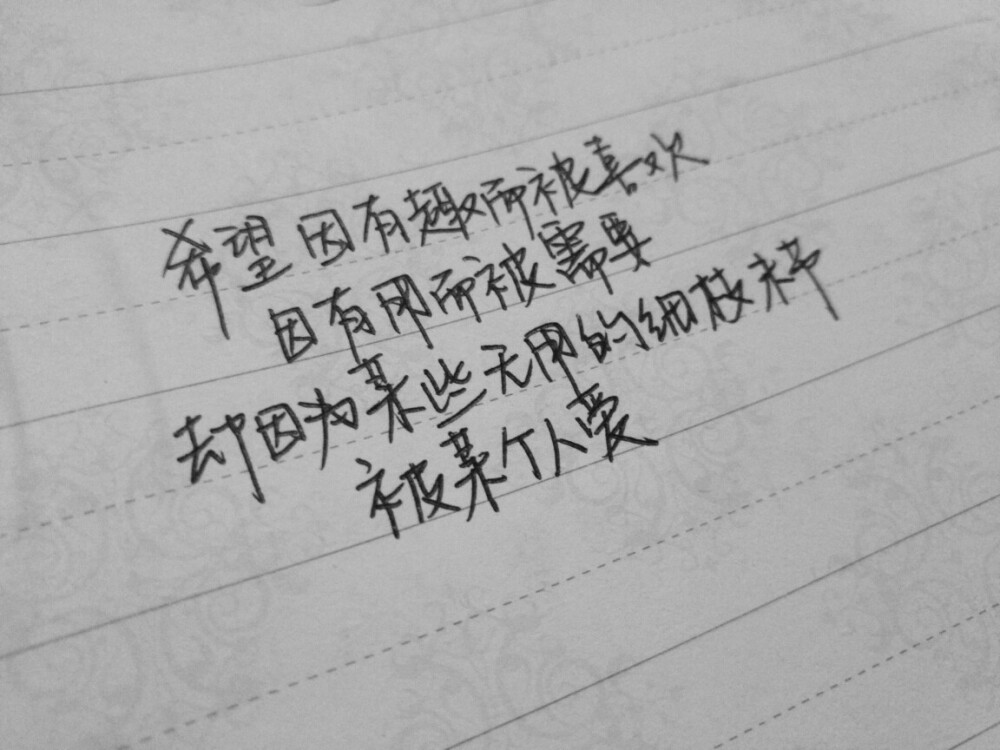 希望因有趣而被喜欢
因有用而被需要
却因为某些无用的细枝末节
被某个人爱